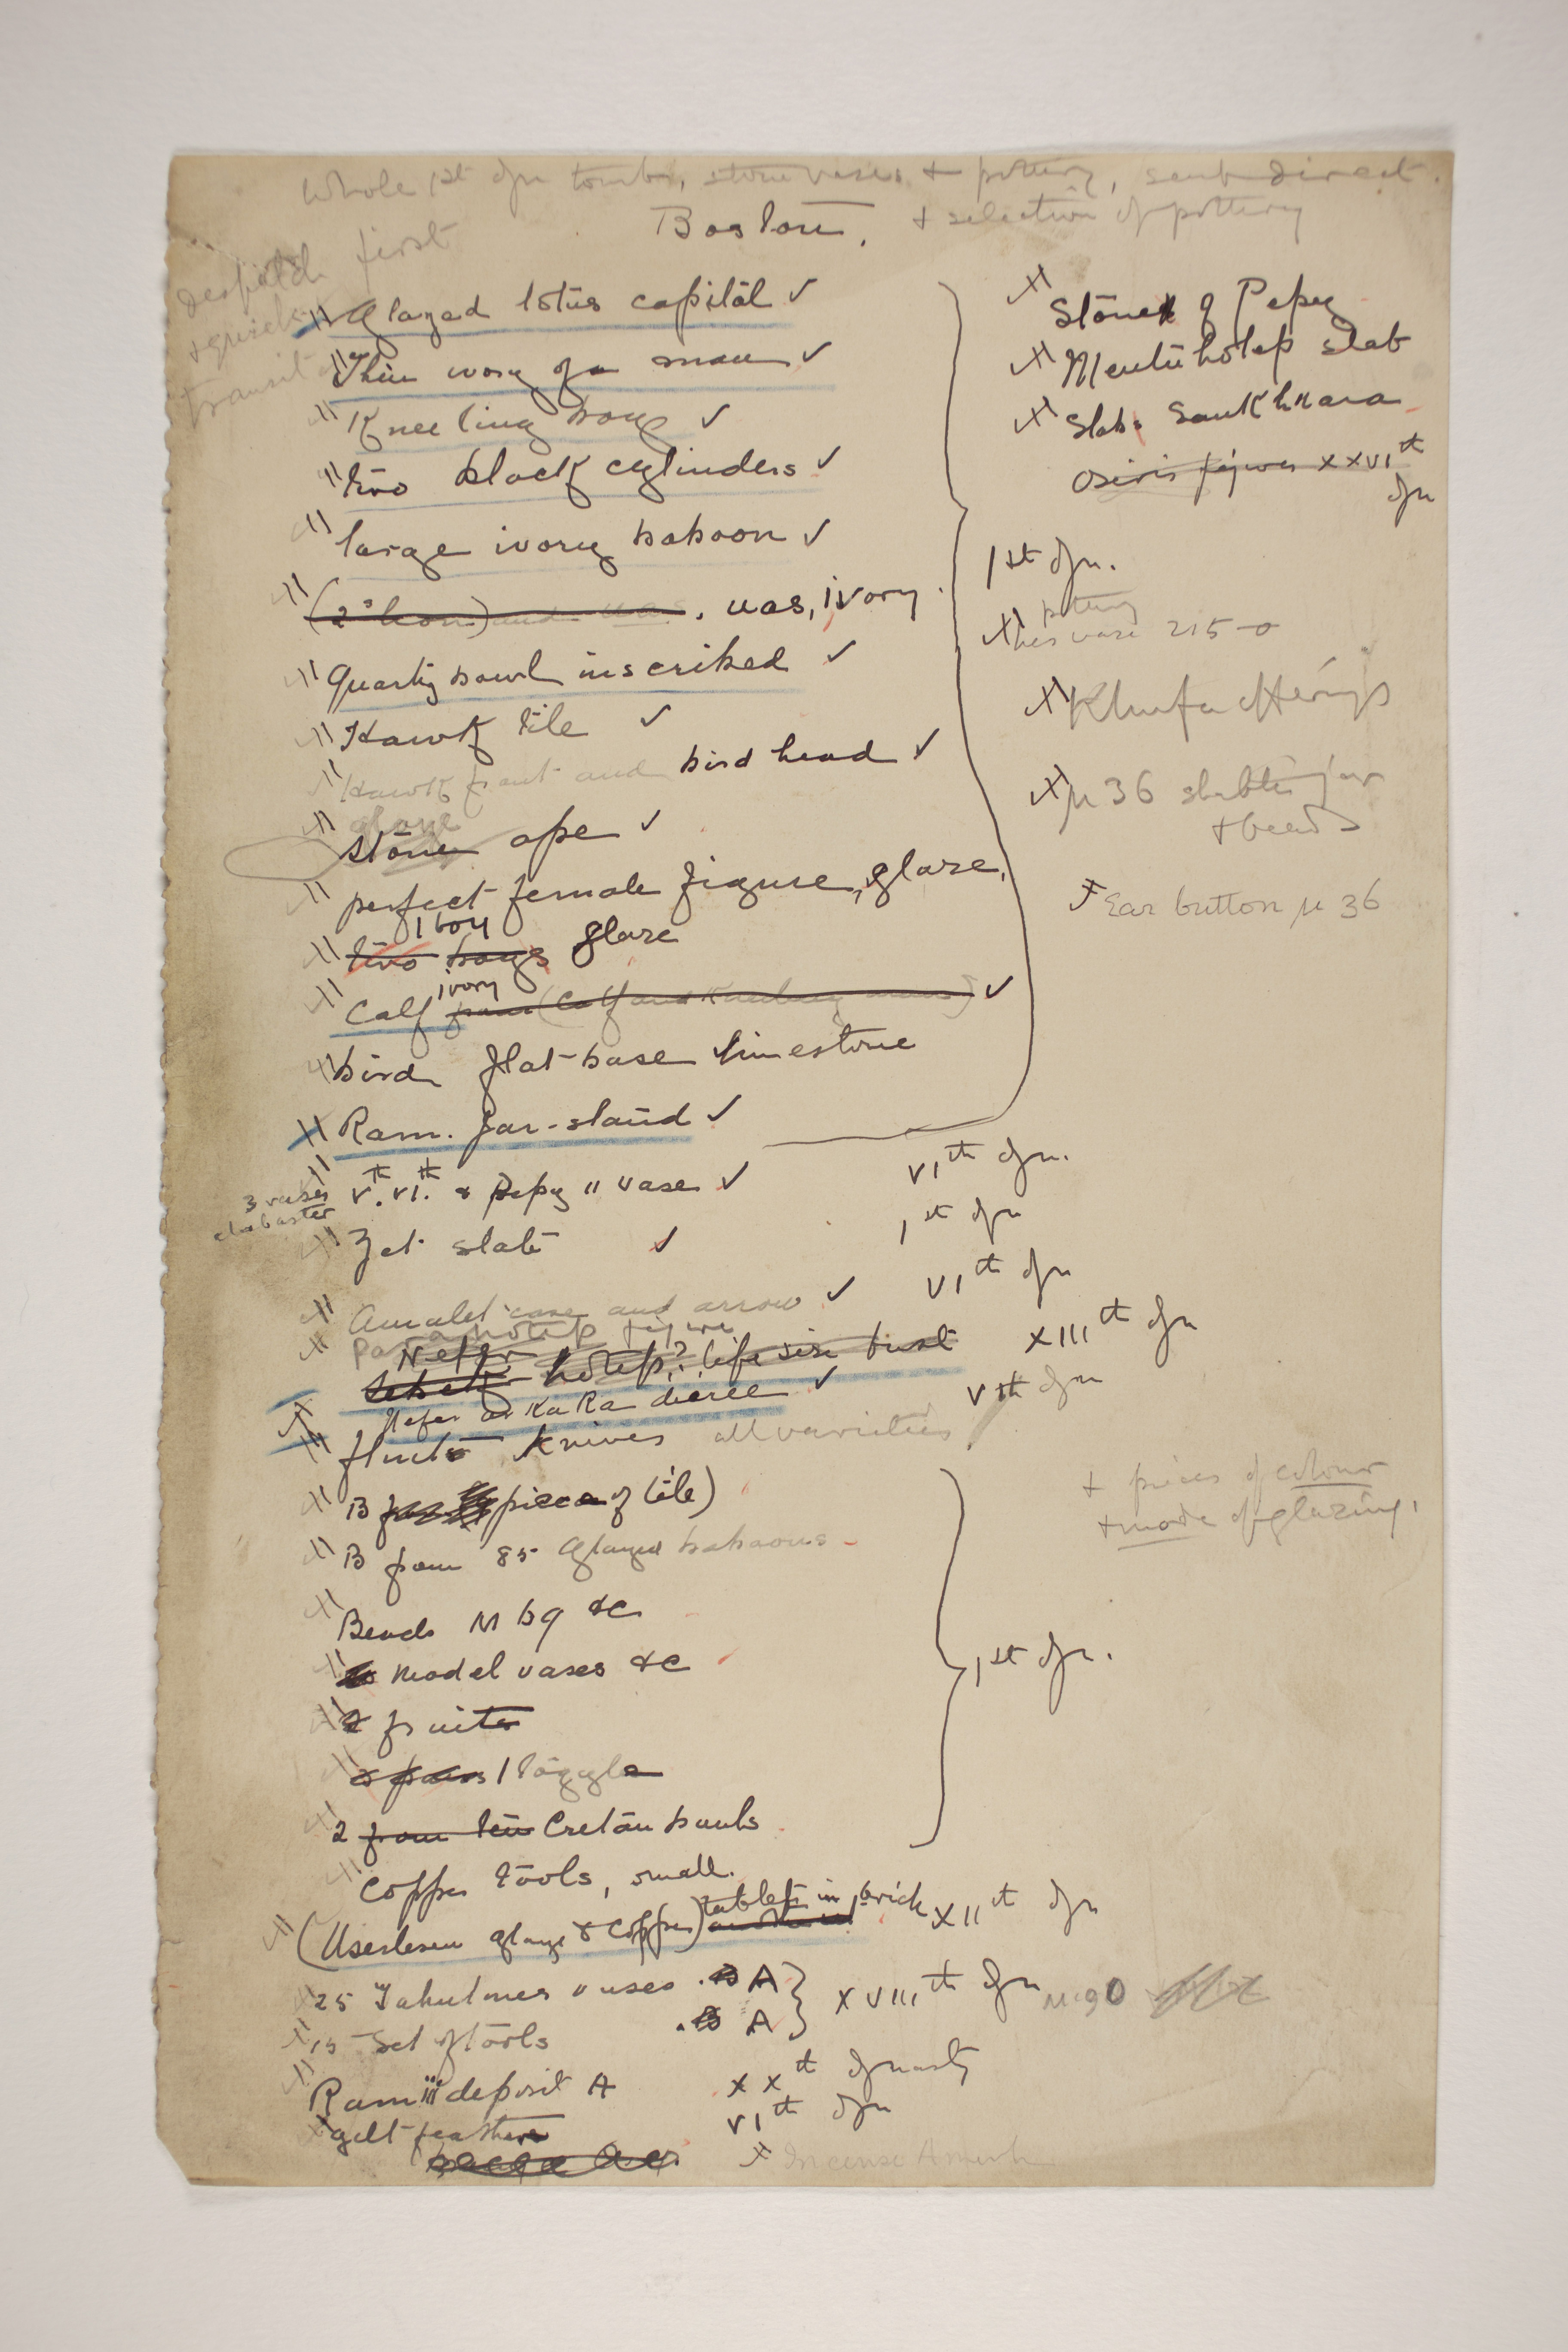 Whole 1st dyn tombs, stone vases + pottery, sent direct.
Boston, + selection of pottery
despatch first
+ quick
transit
Glazed lotus capital ✓
Thin ivory of a man ✓
Kneeling boy ✓
two black cylinders ✓
large ivory baboon ✓
(2d lion) and uas, uas, ivory
Quartz bowl inscribed ✓
Hawk tile ✓
Hawk front and bird head ✓
glaze
stone ape ✓
perfect female figure, glaze,
1 boy
two boys glaze
ivory
Calf from (Calf and Kneeling man) ✓
bird flat base limestone
Ram. jar-stand ✓
3 vases
alabaster
Vth. VIth. & Pepy II vase ✓ VIth dyn.
Zet slate ✓ 1st dyn
Amulet case and arrow ✓ VIth dyn
Parahotep figure
Nefer hotep? life size bust XIIIth dyn
Nefer ar Ka Ra decree ✓ Vth dyn
flint knives all varieties
B piece of tile)
B from 85 Glazed baboons
Beads M 69 &c
model vases &c
2 fruits
1 toggle
2 from ten Cretan bowls
Copper tools, small.
(Usertesen glaze & Copper) tablets in brick XIIth dyn
25 Tahutmes vases . B A } XVIIIth dyn M.90
15 Set of tools . B A
Ram III deposit A XXth dynasty
gilt feather VIth dyn
Stone of Pepy
Mentuhotep slab
Slab. Sankhkara
Osiris figures XXVIth
dyn
1st dyn.
pottery
hes vase 215
Khufu offerings
M 36 shabti jar
+ beads
Ear button M 36
+ pieces of colour
+ mode of glazing,
1st dyn.
Incense